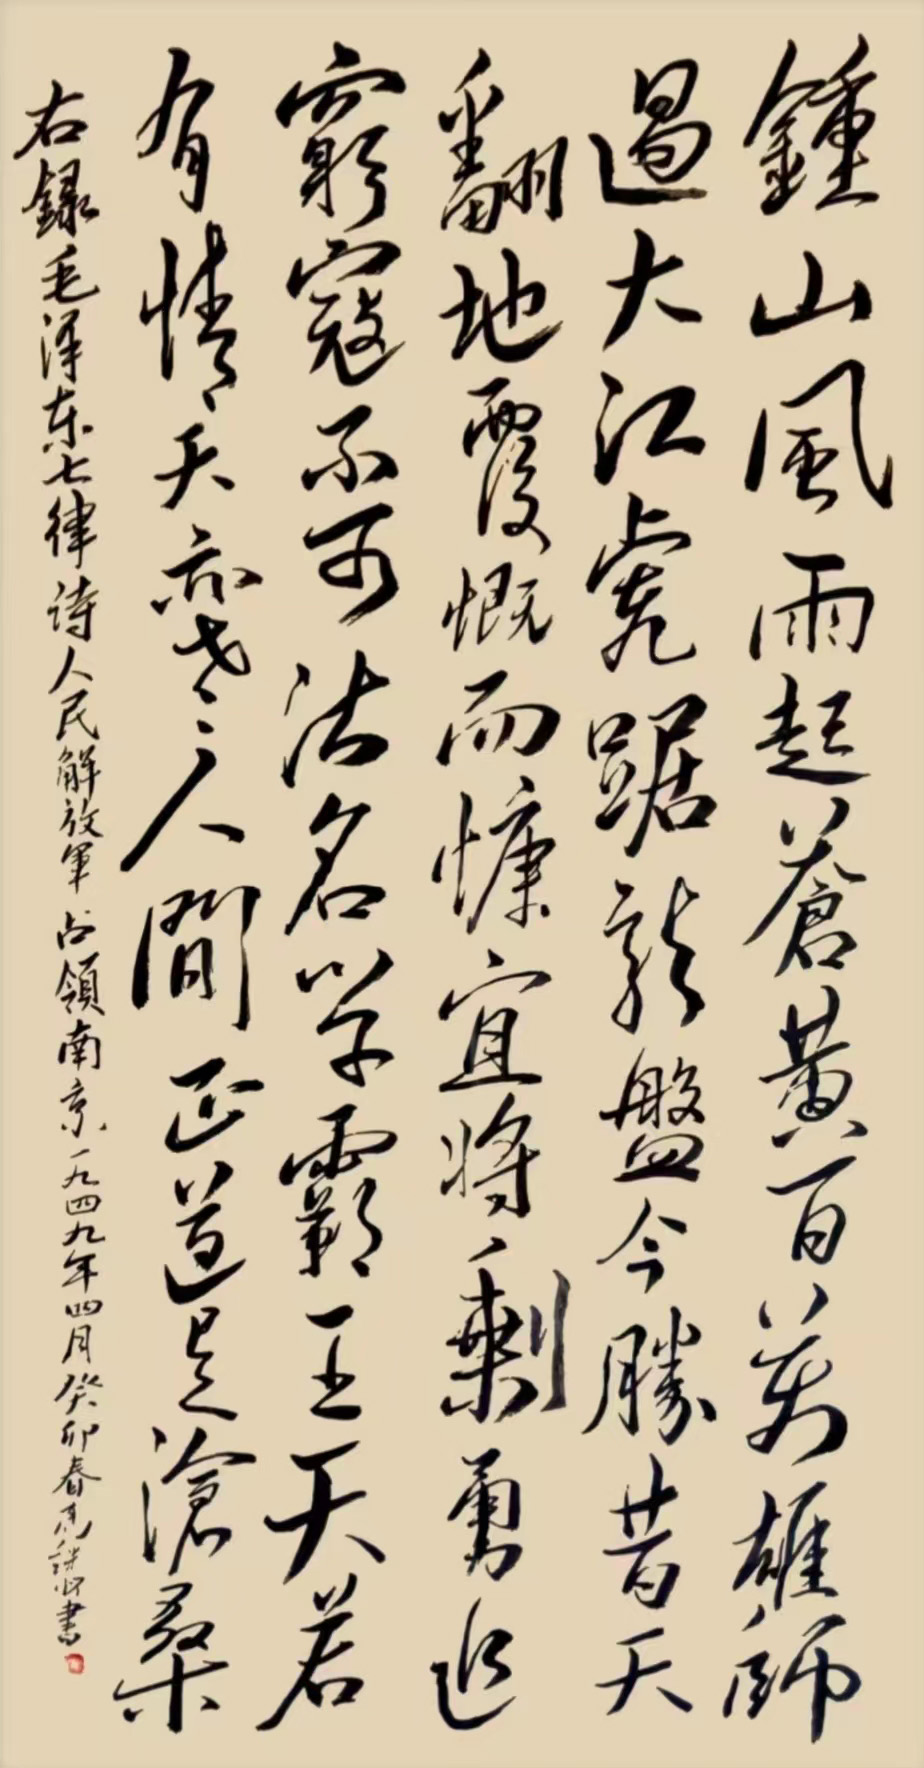 鍾山風雨起蒼黃百萬雄師
過大江虎踞龍盤今勝昔天
翻地覆慨而慷宜將剩勇追
窮寇不可沽名學霸王天若
有情天亦老人間正道是滄桑
右録毛泽东七律诗人民解放軍占領南京一九四九年四月癸卯春書